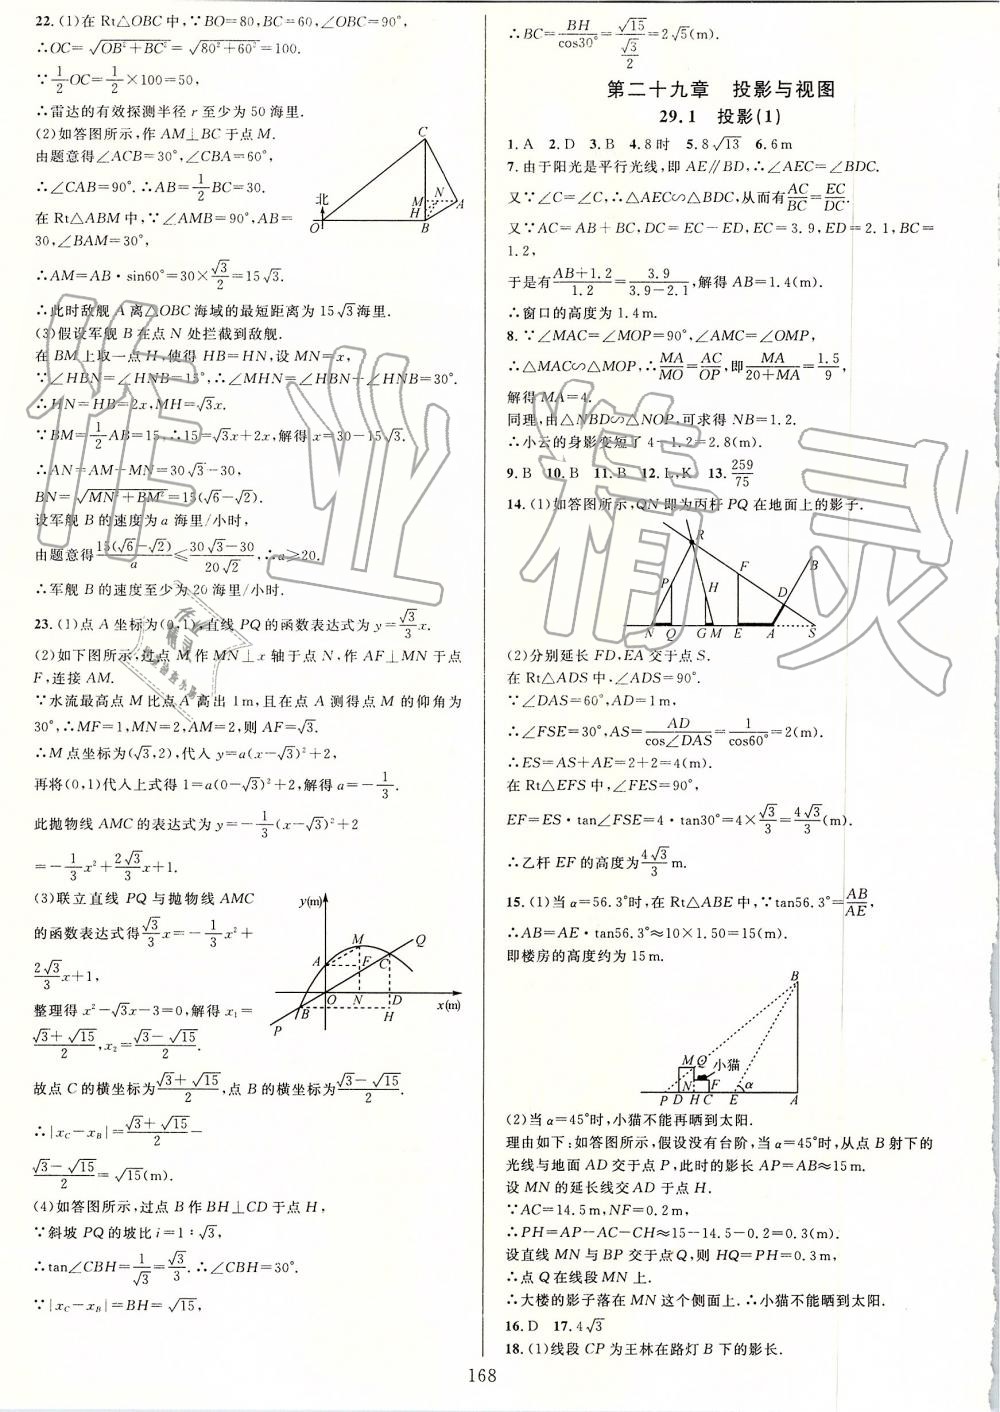 22.(1)在Rt△OBC中,∵BO=80,BC=60,∠OBC=90°,
∴OC=√(OB²+BC²)=√(80²+60²)=100.
∵1/2 OC=1/2×100=50,
∴雷达的有效探测半径r至少为50海里.
(2)如答图所示,作AM⊥BC于点M.
由题意得∠ACB=30°,∠CBA=60°,
∴∠CAB=90°.∴AB=1/2 BC=30.
在Rt△ABM中,∵∠AMB=90°,AB=
30,∠BAM=30°,
∴AM=AB·sin60°=30×√3/2=15√3.
∴此时敌舰A离△OBC海域的最短距离为15√3海里.
(3)假设军舰B在点N处拦截到敌舰.
在BM上取一点H,使得HB=HN,设MN=x,
∵∠HBN=∠HNB=15°,∴∠MHN=∠HBN+∠HNB=30°.
∴HN=HB=2x,MH=√3x.
∵BM=1/2 AB=15,∴15=√3x+2x,解得x=30-15√3.
∴AN=AM-MN=30√3-30.
BN=√(MN²+BM²)=15(√6-√2).
设军舰B的速度为a海里/小时,
由题意得15(√6-√2)/a≤(30√3-30)/(20√2),∴a≥20.
∴军舰B的速度至少为20海里/小时.
23.(1)点A坐标为(0,1),直线PQ的函数表达式为y=√3/3 x.
(2)如下图所示,过点M作MN⊥x轴于点N,作AF⊥MN于点
F,连接AM.
∵水流最高点M比点A高出1m,且在点A测得点M的仰角为
30°,∴MF=1,MN=2,AM=2,则AF=√3.
∴M点坐标为(√3,2),代入y=a(x-√3)²+2,
再将(0,1)代入上式得1=a(0-√3)²+2,解得a=-1/3.
此抛物线AMC的表达式为y=-1/3(x-√3)²+2
=-1/3 x²+2√3/3 x+1.
(3)联立直线PQ与抛物线AMC
的函数表达式得√3/3 x=-1/3 x²+
2√3/3 x+1,
整理得x²-√3x-3=0,解得x₁=
(√3+√15)/2,x₂=(√3-√15)/2.
故点C的横坐标为(√3+√15)/2,点B的横坐标为(√3-√15)/2.
∴|x_C-x_B|=(√3+√15)/2-
(√3-√15)/2=√15(m).
(4)如答图所示,过点B作BH⊥CD于点H,
∵斜坡PQ的坡比i=1:√3,
∴tan∠CBH=1/√3=√3/3.∴∠CBH=30°.
∵|x_C-x_B|=BH=√15,
北
C
N
M
A
H
O
B
y(m)
M
Q
A
F
C
O
N
D
x(m)
B
H
P
∴BC=BH/cos30°=√15/(√3/2)=2√5(m).
第二十九章 投影与视图
29.1 投影(1)
1.A 2.D 3.B 4.8时 5.8√13 6.6m
7.由于阳光是平行光线,即AE∥BD,∴∠AEC=∠BDC.
又∵∠C=∠C,∴△AEC∽△BDC,从而有AC/BC=EC/DC.
又∵AC=AB+BC,DC=EC-ED,EC=3.9,ED=2.1,BC=
1.2,
于是有(AB+1.2)/1.2=3.9/(3.9-2.1),解得AB=1.4(m).
∴窗口的高度为1.4m.
8.∵∠MAC=∠MOP=90°,∠AMC=∠OMP,
∴△MAC∽△MOP,∴MA/MO=AC/OP,即MA/(20+MA)=1.5/9,
解得MA=4.
同理,由△NBD∽△NOP,可求得NB=1.2.
∴小云的身影变短了4-1.2=2.8(m).
9.B 10.B 11.B 12.L、K 13.259/75
14.(1)如答图所示,QN即为丙杆PQ在地面上的影子.
R
P
H
F
B
D
N
Q
G
M
E
A
S
(2)分别延长FD,EA交于点S.
在Rt△ADS中,∠ADS=90°.
∵∠DAS=60°,AD=1m,
∴∠FSE=30°,AS=AD/cos∠DAS=1/cos60°=2(m).
∴ES=AS+AE=2+2=4(m).
在Rt△EFS中,∠FES=90°,
EF=ES·tan∠FSE=4·tan30°=4×√3/3=4√3/3(m).
∴乙杆EF的高度为4√3/3 m.
15.(1)当α=56.3°时,在Rt△ABE中,∵tan56.3°=AB/AE,
∴AB=AE·tan56.3°≈10×1.50=15(m).
即楼房的高度约为15m.
B
M
Q
小猫
N
F
α
P
D
H
C
E
A
(2)当α=45°时,小猫不能再晒到太阳.
理由如下:如答图所示,假设没有台阶,当α=45°时,从点B射下的
光线与地面AD交于点P,此时的影长AP=AB≈15m.
设MN的延长线交AD于点H.
∵AC=14.5m,NF=0.2m,
∴PH=AP-AC-CH≈15-14.5-0.2=0.3(m).
设直线MN与BP交于点Q,则HQ=PH=0.3m,
∴点Q在线段MN上.
∴大楼的影子落在MN这个侧面上.∴小猫不能晒到太阳.
16.D 17.4√3
18.(1)线段CP为王林在路灯B下的影长.
168
作业精灵